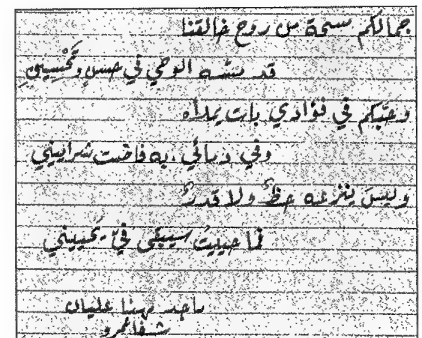 جمالكم نسمة من روح خالقنا
قد مسّه الوحي في حسنٍ وتَحْسِينِ
وحبّكم في فؤادي بات يملأه
وفي دمائي، به فاضت شراييني
وليسَ ينزعه حظٌ ولا قدرٌ
فما حييتُ سيبقى فيّ يحييني
ماجد مهنا عليان
شفاعمرو